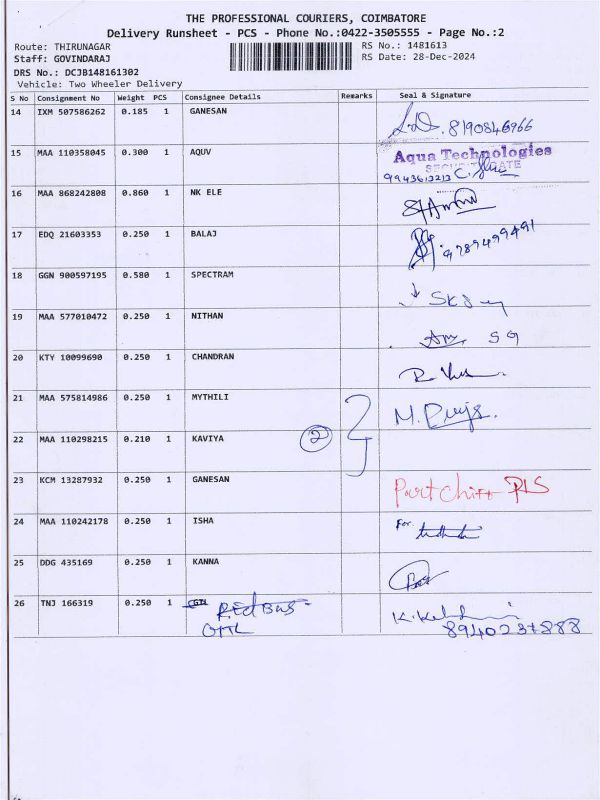 THE PROFESSIONAL COURIERS, COIMBATORE
Delivery Runsheet - PCS - Phone No.:0422-3505555 - Page No.:2
Route: THIRUNAGAR
RS No.: 1481613
Staff: GOVINDARAJ
RS Date: 28-Dec-2024
DRS No.: DCJB148161302
Vehicle: Two Wheeler Delivery
S No Consignment No Weight PCS Consignee Details Remarks Seal & Signature
14 IXM 507586262 0.185 1 GANESAN
8190846966
15 MAA 110358045 0.300 1 AQUV
Aqua Technologies
9943613213
16 MAA 868242808 0.860 1 NK ELE
17 EDQ 21603353 0.250 1 BALAJ
9789499491
18 GGN 900597195 0.580 1 SPECTRAM
19 MAA 577010472 0.250 1 NITHAN
20 KTY 10099690 0.250 1 CHANDRAN
21 MAA 575814986 0.250 1 MYTHILI
22 MAA 110298215 0.210 1 KAVIYA 2
23 KCM 13287932 0.250 1 GANESAN
24 MAA 110242178 0.250 1 ISHA For
25 DDG 435169 0.250 1 KANNA
26 TNJ 166319 0.250 1 Red Bus